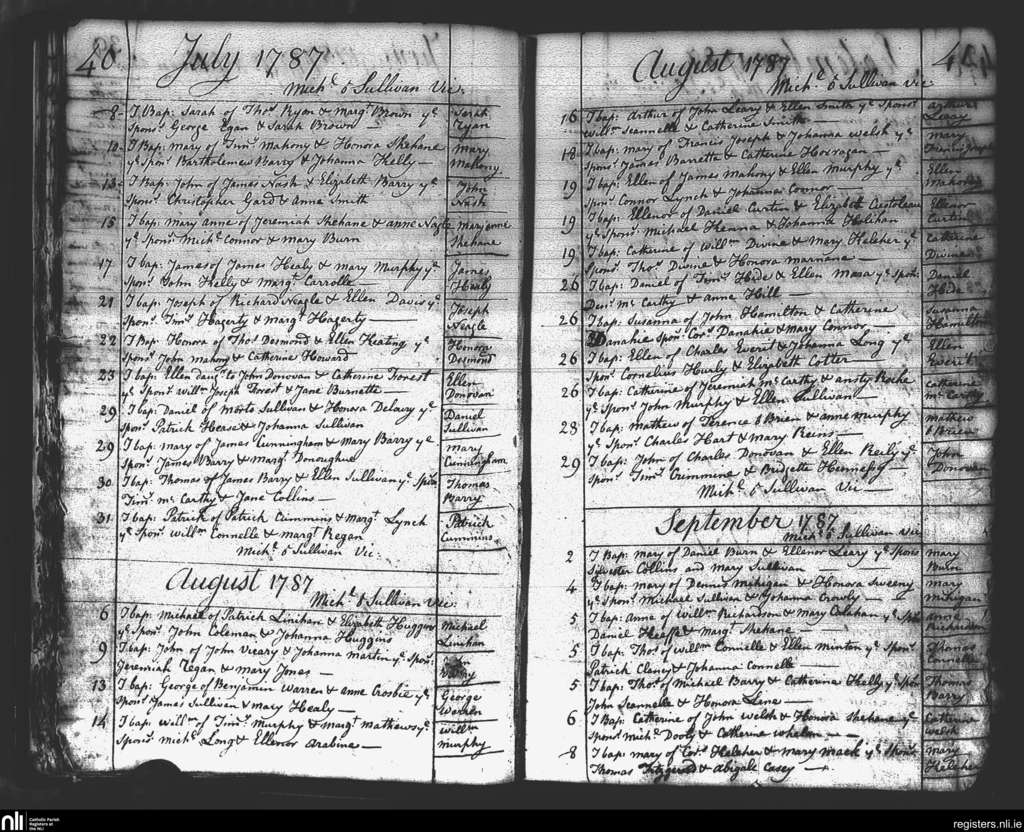 40 July 1787
Mich.l ô Sullivan Vic:
8 I Bap: Sarah of Tho.s Ryan & Marg.t Brown y.e Sarah
Spon.s George Egan & Sarah Brown — Ryan
10 I Bap: Mary of Tim.y Mahony & Honora Shehane Mary
y.e Spon.s Bartholemew Barry & Johanna Kelly — Mahony
13 I Bap: John of James Nash & Elizabeth Barry y.e John
Spon.s Christopher Gard & Anne Smith Nash
15 I bap: Mary anne of Jeremiah Shehane & anne Nagle Mary anne
y.e Spon.s Mich.l Connor & Mary Burn Shehane
17 I bap: James of James Healy & Mary Murphy y.e James
Spon.s John Kelly & Marg.t Carrolle — Healy
21 I bap: Joseph of Richard Neagle & Ellen Davis y.e Joseph
Spon.s Tim.y Hagerty & Marg.t Hagerty — Neagle
22 I Bap: Honora of Tho.s Desmond & Ellen Keating y.e Honora
Spon.s John Mahony & Catherine Howard Desmond
23 I bap: Ellen Daug.r to John Donovan & Catherine Forest Ellen
y.e Spon.s Will.m Joseph Forest & Jane Burnette — Donovan
29 I bap: Daniel of Morto Sullivan & Honora Delaury y.e Daniel
Spon.s Patrick Hease & Johanna Sullivan Sullivan
29 I bap: Mary of James Cunningham & Mary Barry y.e Mary
Spon.s James Barry & Marg.t Donoughue Cunningham
30 I bap: Thomas of James Barry & Ellen Sullivan y.e Spon.s Thomas
Tim.y Mc Carthy & Jane Collins — Barry
31 I bap: Patrick of Patrick Cummins & Marg.t Lynch Patrick
y.e Spon.s Will.m Connelle & Marg.t Regan Cummins
Mich.l ô Sullivan Vic:
August 1787
Mich.l ô Sullivan Vic:
6 I bap: Michael of Patrick Linihan & Elizabeth Huggins Michael
y.e Spon.s John Coleman & Johanna Huggins Linihan
9 I bap: John of John Vieary & Johanna Martin y.e Spon.s John
Jeremiah Regan & Mary Jones —
13 I bap: George of Benjamin Warren & Anne Crosbie y.e George
Spon.s James Sullivan & Mary Healy — Warren
14 I bap: Will.m of Tim.y Murphy & Marg.t Mathews y.e Will.m
Spon.s Mich.l Long & Ellenor Arabine — Murphy
August 1787
Mich.l ô Sullivan Vic
16 I bap: Arthur of John Leary & Ellen Smith y.e Spon.s Arthur
Will.m Scannelle & Catherine Smith — Leary
18 I bap: Mary of Francis Joseph & Johanna Welsh y.e Mary
Spon.s James Barrette & Catherine Horragan — Francis Joseph
19 I bap: Ellen of James Mahony & Ellen Murphy y.e Ellen
Spon.s Connor Lynch & Johannas Connor — Mahony
19 I bap: Ellenor of Daniel Curtin & Elizabeth Ellenor
y.e Spon.s Michael Hearna & Johanna Holihan Curtin
19 I bap: Catherine of Will.m Divine & Mary Keleher y.e Catherine
Spon.s Tho.s Divine & Honora Marnane — Divine
26 I bap: Daniel of Tim.y Hide & Ellen Mara y.e Spon.s Daniel
Den.s Mc Carthy & Anne Hill — Hide
26 I bap: Susanna of John Hamilton & Catherine Susanna
Danahie Spon.s Cor.s Danahie & Mary Connor — Hamilton
26 I bap: Ellen of Charles Everit & Johanna Long y.e Ellen
Spon.s Cornelius Hurly & Elizabeth Cotter Everit
26 I bap: Catherine of Jeremiah Mc Carthy & Roche Catherine
y.e Spon.s John Murphy & Ellen Sullivan — Mc Carthy
28 I bap: Mathew of Terence ô Brien & Anne Murphy Mathew
y.e Spon.s Charles Hart & Mary Reins — ô Brien
29 I bap: John of Charles Donovan & Ellen Reily y.e John
Spon.s Tim.y Crimmine & Bridgette Hennessy — Donovan
Mich.l ô Sullivan Vic —
September 1787
Mich.l ô Sullivan Vic
2 I Bap: Mary of Daniel Burn & Ellenor Leary y.e Spon.s Mary
Silvester Collins and Mary Sullivan — Burn
4 I bap: Mary of Dennis Mihigan & Honora Sweeny Mary
y.e Spon.s Michael Sullivan & Johanna Crowly — Mihigan
5 I bap: Anne of Will.m Richardson & Mary Calahan y.e Spon.s Anne
Daniel Heaffe & Marg.t Shehane — Richardson
5 I bap: Tho.s of Will.m Connelle & Ellen Minton y.e Spon.s Thomas
Patrick Clancy & Johanna Connelle — Connelle
5 I bap: Tho.s of Michael Barry & Catherine Kelly y.e Spon.s Thomas
John Scannelle & Honora Lane — Barry
6 I Bap: Catherine of John Welsh & Honora Shehane y.e Catherine
Spon.s Mich.l Dooly & Catherine Whelan — Welsh
8 I bap: Mary of Cor.s Keleher & Mary Mack y.e Spon.s Mary
Thomas Fitzgerald & Abigale Casey — Keleher
nli
Catholic Parish
Registers at
the NLI
registers.nli.ie